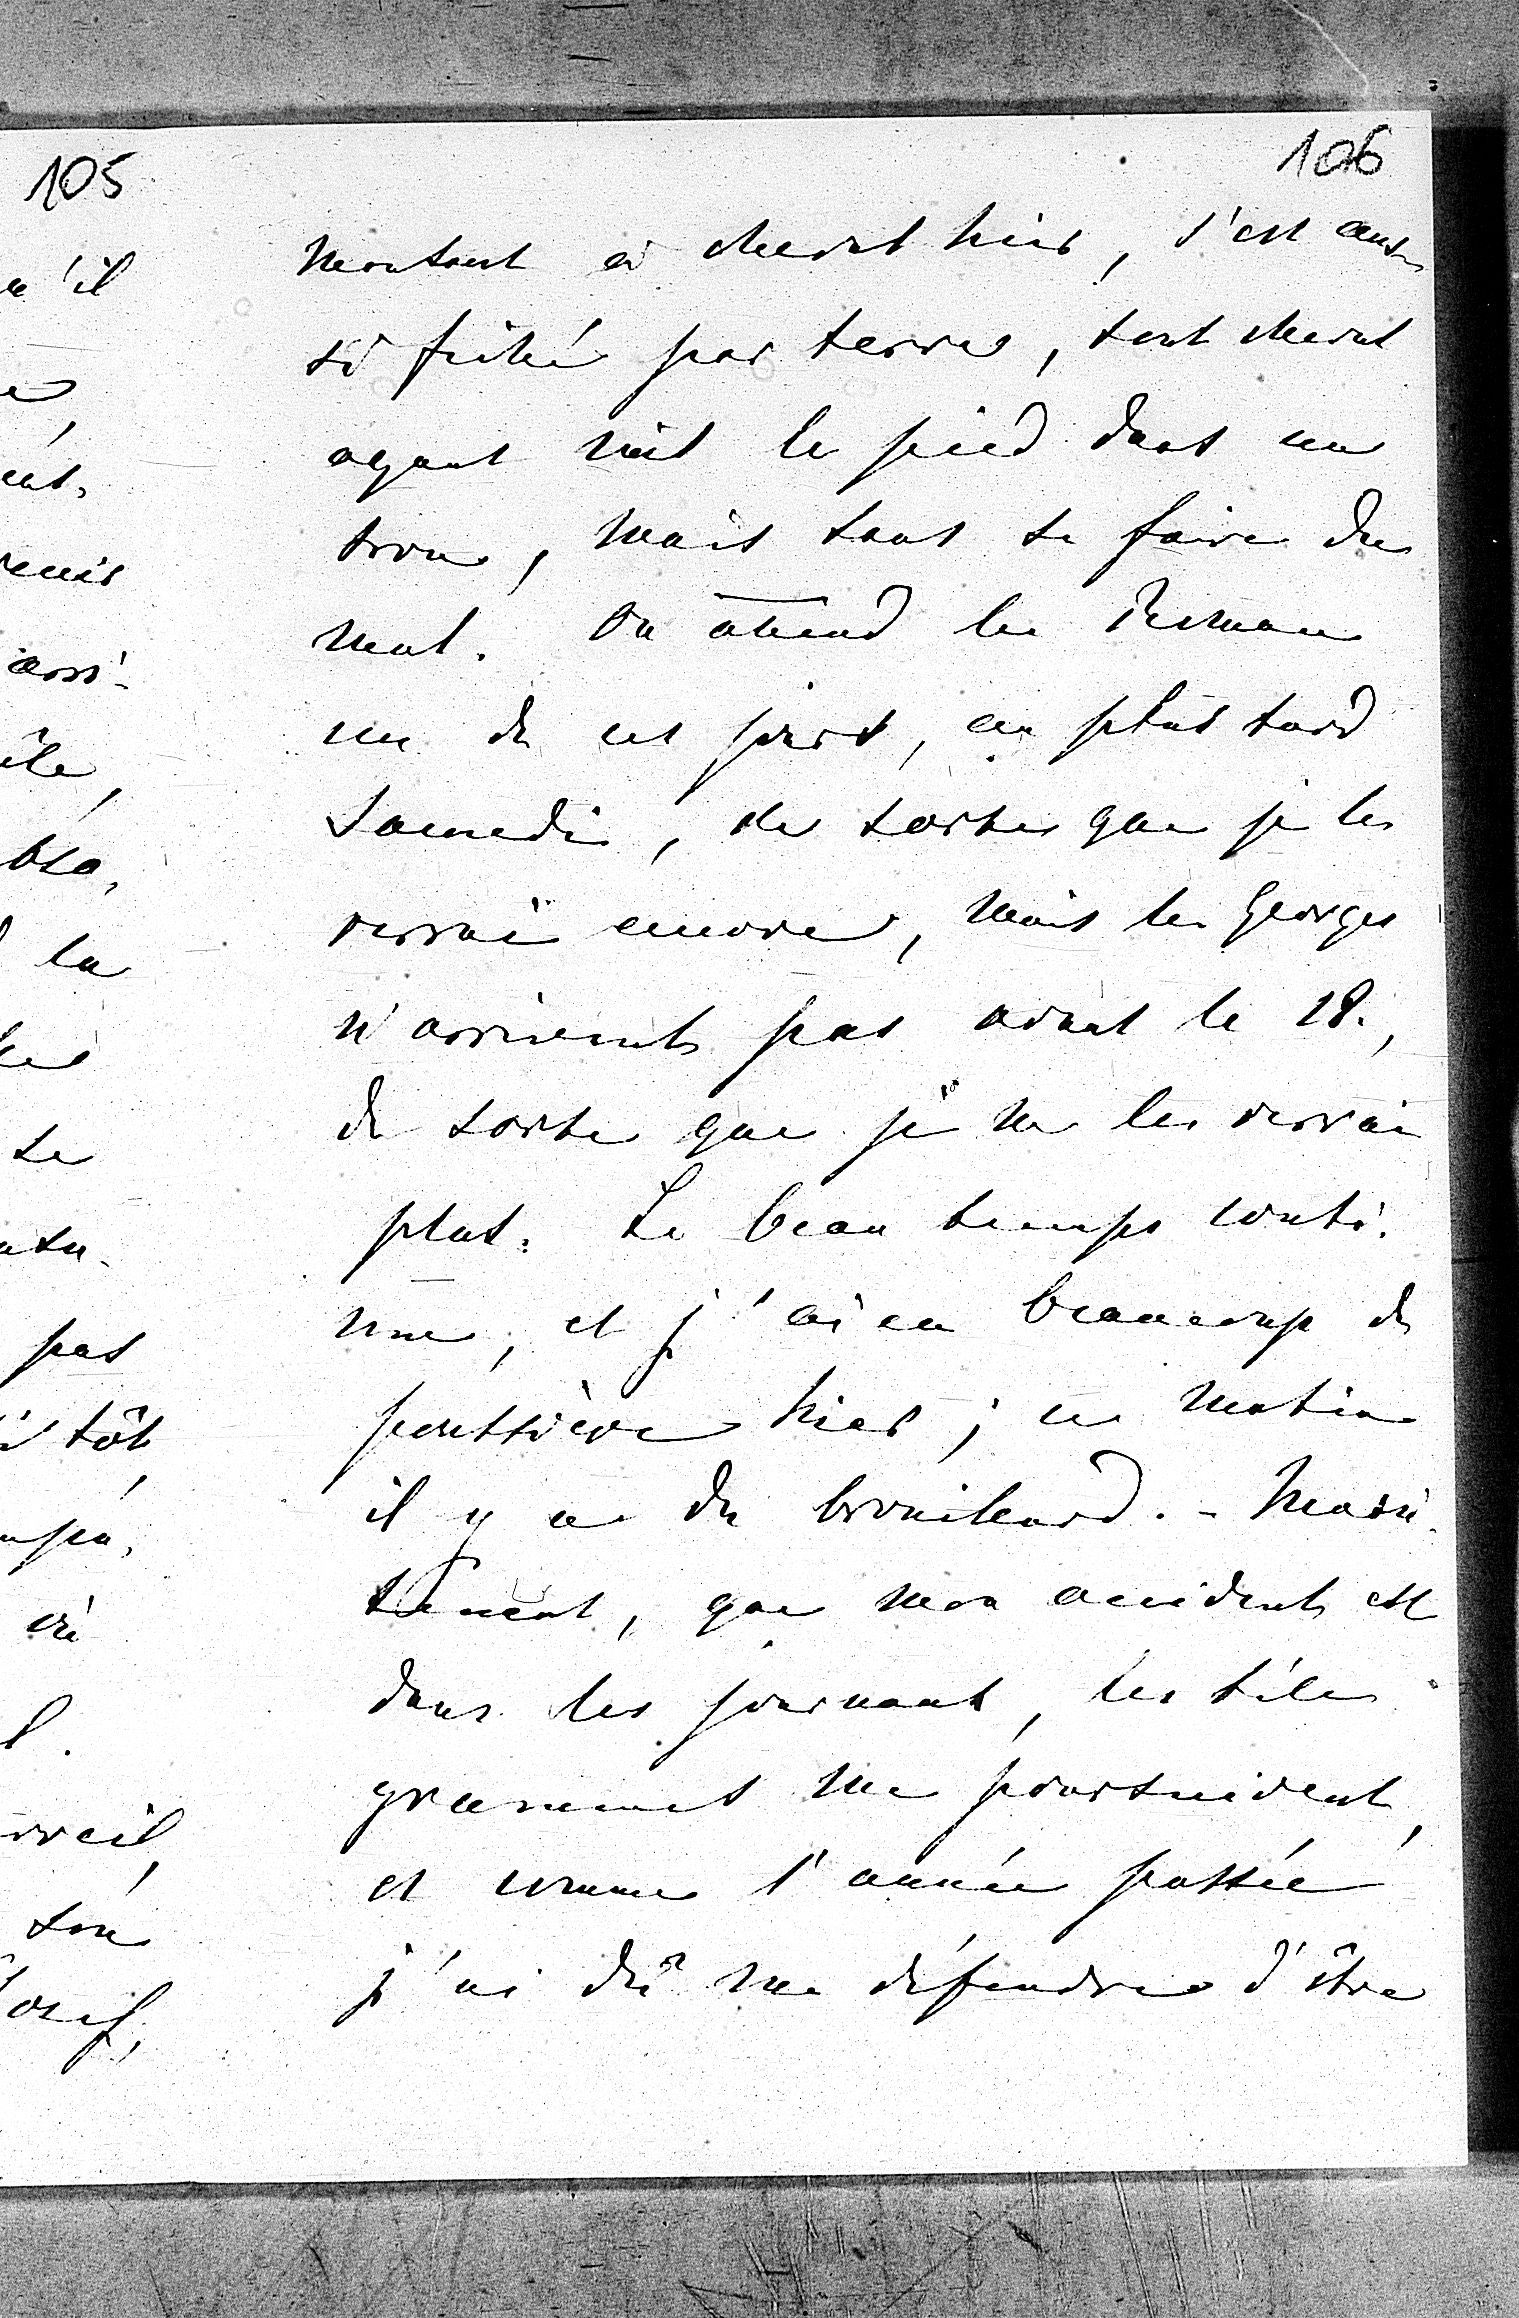 105
106
montant à cheval hier, s'est aus-
si fiché par terre, son cheval
ayant mis le pied dans un
trou, mais sans se faire du
mal. On attend les
un de ces jours, au plus tard
Samedi, de sorte que je les
verrai encore, mais les Georges
n'arrivent pas avant le 18.,
de sorte que je ne les verrai
plus. Le beau temps conti-
nue, et j'ai eu beaucoup de
poussière hier; ce matin
il y a du brouillard. - Main-
tenant, que mon accident est
dans les journaux, les télé-
grammes me poursuivent,
et comme l'année passée
j'ai dû me défendre d'être
u'il
la
se
pas
tôt